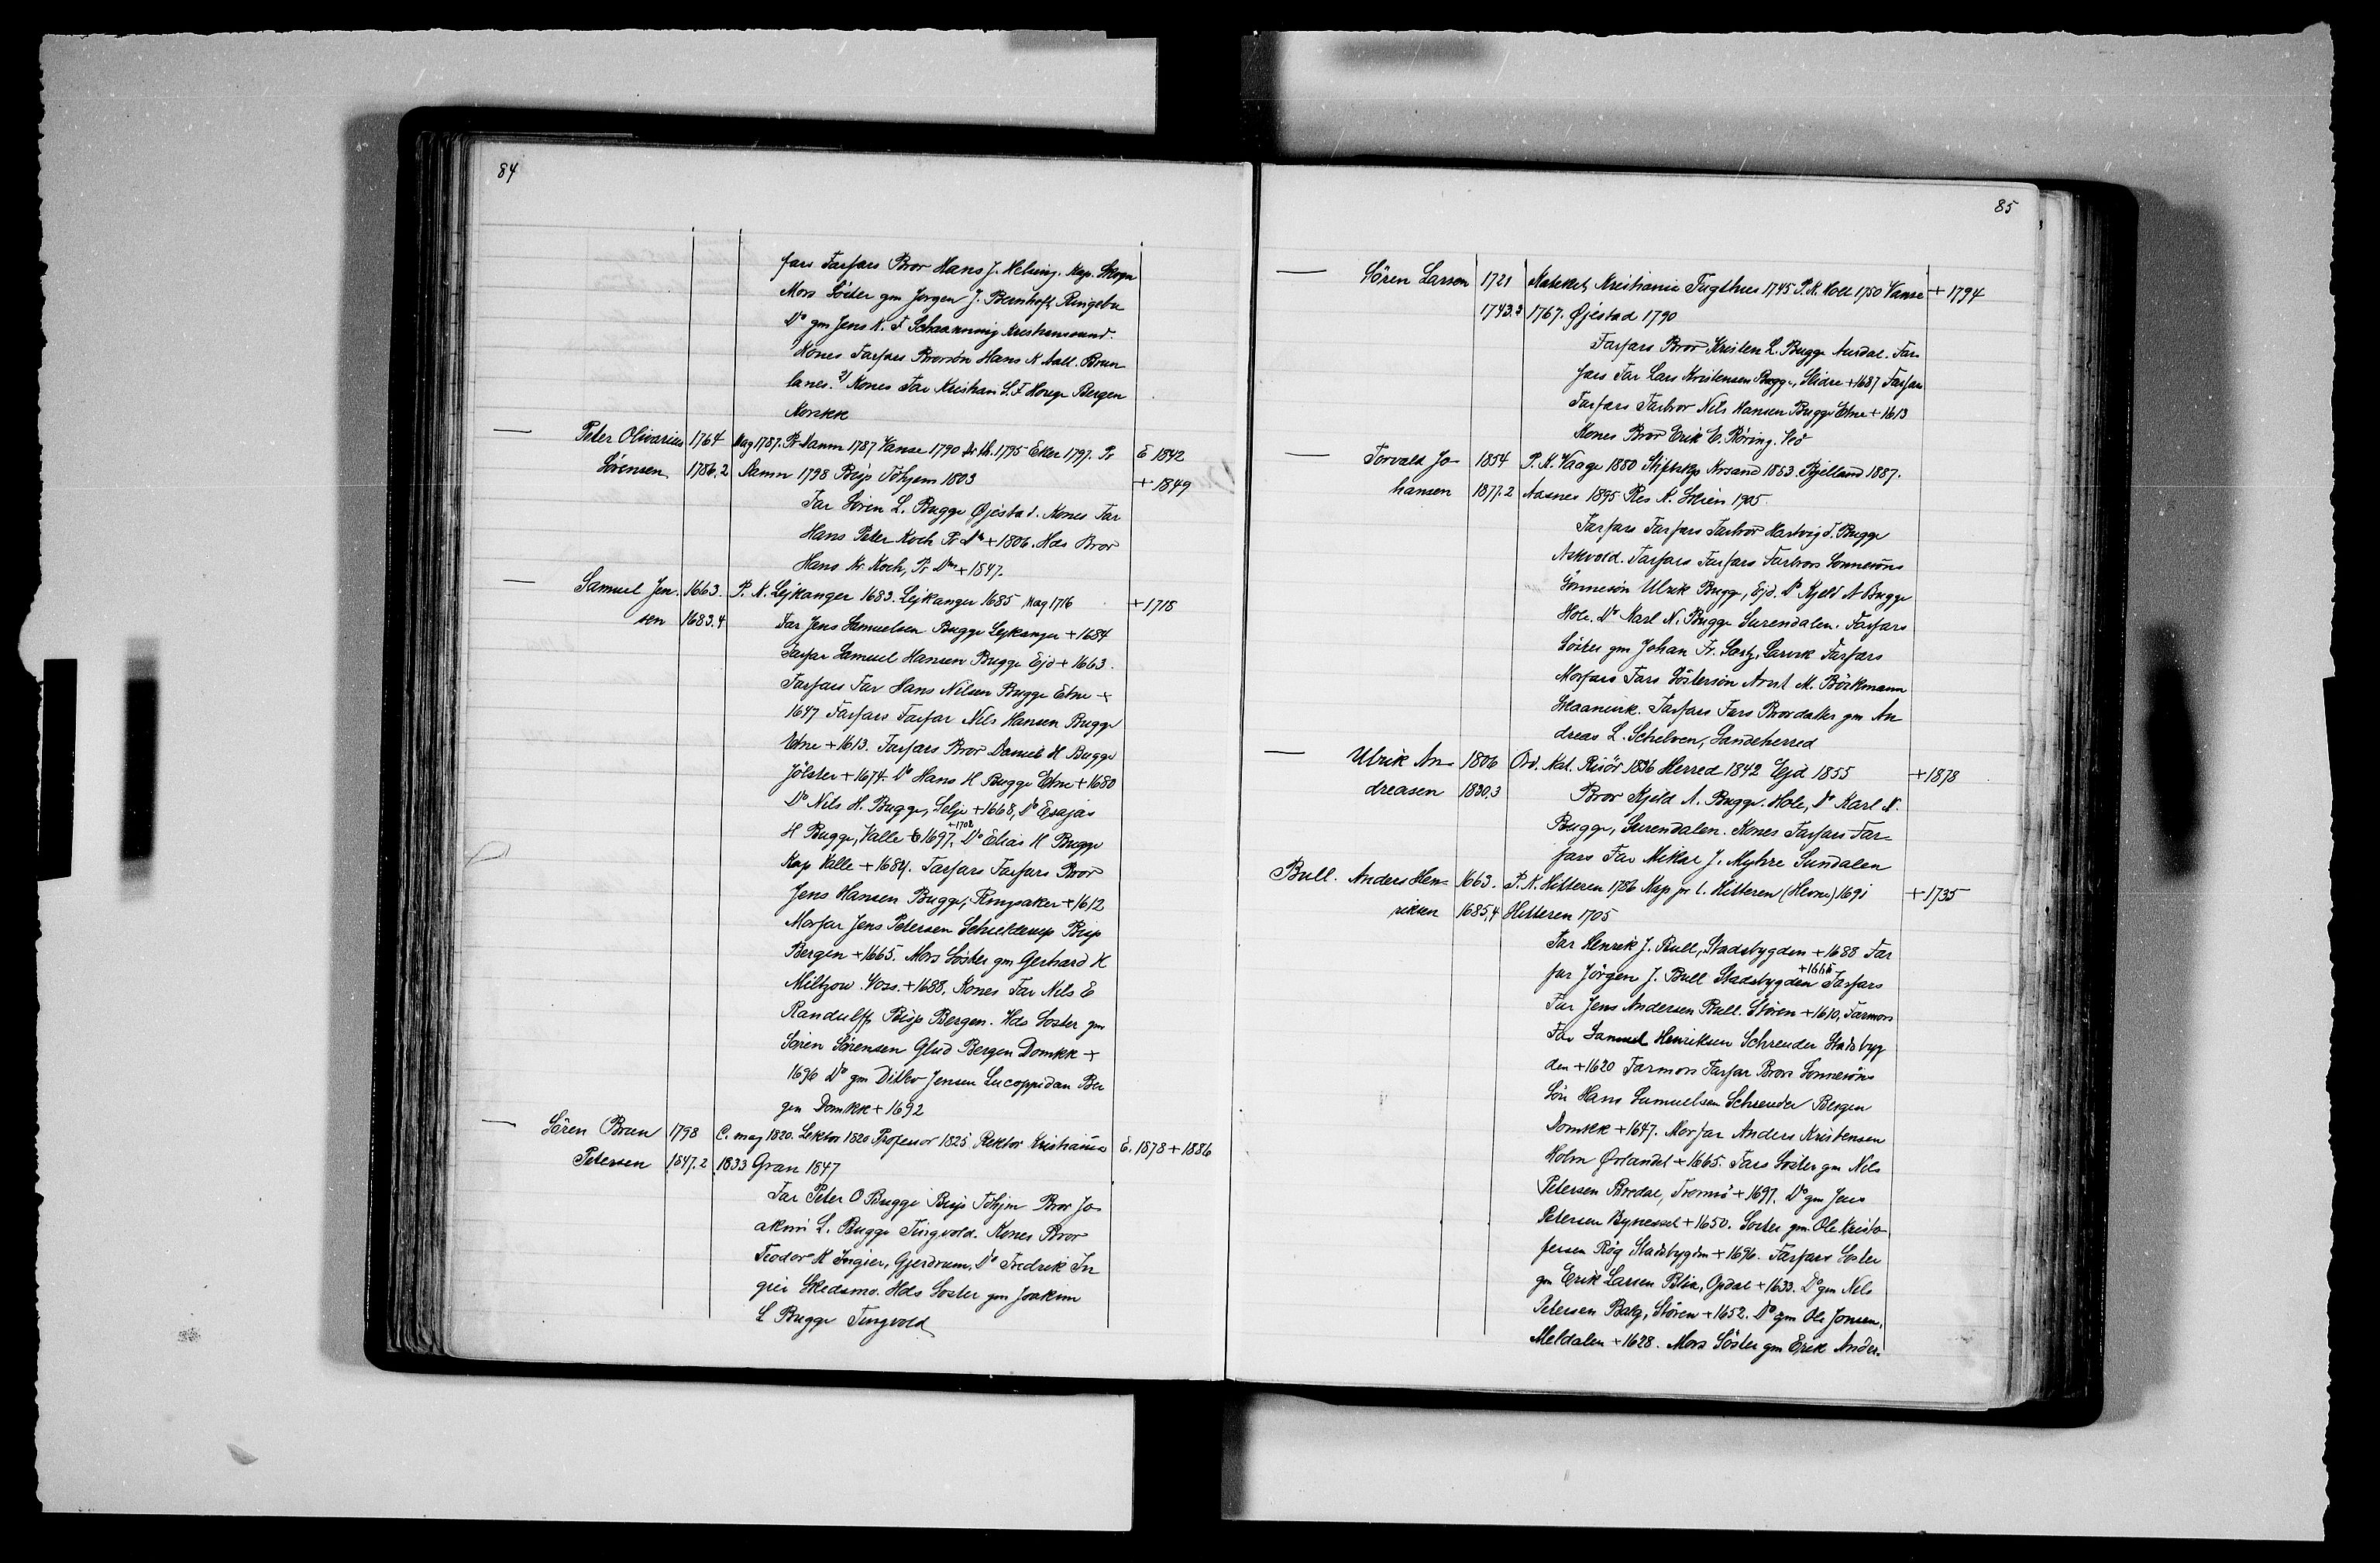 84
fars Farfars Bror Hans J. Helsing. Kap. Skogn
Mors Söster gm Jörgen J. Bernhoft, Ringebu
Do gm Jens K. F Schaanning Kristiansund.
Kones Farfars Brorsön Hans N Aall. Brun
lanes. 2) Kones Far Kristian S. F Bergen
Korskk
— Peter Olivarius 1764 Mag 1787. Pr Danm 1787 Vanse 1790 Dr th. 1795 Eker 1797. Pr E 1842
Sörensen 1786.2 Danm 1798 Bisp Tdhjem 1803 + 1849
Far Sören L. Bugge Öjestad. Kones Far
Hans Peter Koch Pr Dm + 1806. Hds Bror
Hans Kr. Koch, Pr Dm + 1847.
— Samuel Jen- 1663. P. K. Lejkanger 1683. Lejkanger 1685 Mag 1716 + 1718
sen 1683.4 Far Jens Samuelsen Bugge Lejkanger + 1684
Farfar Samuel Hansen Bugge Ejd + 1663.
Farfars Far Hans Nilsen Bugge Etne +
1647 Farfars Farfar Nils Hansen Bugge
Etne + 1613. Farfars Bror Daniel H Bugge
Jölster + 1674. Do Hans H Bugge Etne + 1680
Do Nils H. Bugge, Selje + 1668, Do Esajas
H Bugge, Valle E 1697, +1702 Do Elias H Bugge
Kap Valle + 1684. Farfars Farfars Bror
Jens Hansen Bugge, Ringsaker + 1612
Morfar Jens Petersen Schielderup Bisp
Bergen + 1665. Mors Söster gm Gerhard H
Miltzow. Voss. + 1688. Kones Far Nils E
Randulff, Bisp Bergen. Hds Söster gm
Sören Sörensen Glud Bergen Domkk +
1696 Do gm Ditlev Jensen Lucoppidan Ber
gen Domkk + 1692
— Sören Brun 1798 C. mag 1820. Lektor 1820 Professor 1825 Rektor Kristiania E. 1878 + 1886
Petersen 1847.2 1833 Gran 1847
Far Peter O Bugge Bisp Tdhjm Bror Jo
akim L. Bugge Tingvold. Kones Bror
Teodor K Ingier, Gjerdrum. Do Fredrik In
gier Skedsmo. Hds Söster gm Joakim
L Bugge Tingvold
85
— Sören Larsen 1721 Kateket, Kristiania Tugthus 1745 P. K. Holt 1750 Vanse + 1794
1743.3 1767. Öjestad 1790
Farfars Bror Kristen L. Bugge Aurdal. Far
fars Far Lars Kristensen Bugge, Slidre + 1687 Farfars
Farfars Farbror Nils Hansen Bugge Etne + 1613
Kones Bror Erik E. Röring.
— Torvald Jo- 1854 P. K. Vaage 1880 Stiftskp Krsand 1883. Bjelland 1887.
hansen 1877.2 Aasnes 1895 Res K. Skien 1905
Farfars Farfars Farbror Hartvig F. Bugge
Askvold. Farfars Farfars Farbrors Sönnesöns
Sönnesön Ulrik Bugge, Ejd. Do Kjeld A Bugge
Hole. Do Karl N. Bugge Surendalen. Farfars
Söster gm Johan Fr. Larvik Farfars
Morfars Fars Söstersön Arnt M. Böckmann
Skaanevik. Farfars Fars Brordatter gm An
dreas L. Schelven, Sandeherred
— Ulrik An- 1806 Ord. Kat. Risör 1836 Herred 1842 Ejd 1855 + 1878
dreasen 1830.3 Bror Kjeld A. Bugge. Hole, Do Karl N.
Bugge, Surendalen. Kones Farfars Far-
fars Far Mikael J. Myhre Sundalen
Bull. Anders Hen- 1663. P. K. Hitteren 1786 Kap pr l. Hitteren (Hevne) 1691 + 1735
riksen 1685,4 Hitteren 1705
Far Henrik J. Bull, Stadsbygden + 1688 Far
far Jörgen J. Bull Stadsbygden +1665 Farfars
Far Jens Andersen Bull. Stören + 1610, Farmors
Far Samuel Henriksen Schreuder Stadsbyg
den + 1620 Farmors Farfar Brors Sönnesöns
Sön Hans Samuelsen Schreuder Bergen
Domkk + 1647. Morfar Anders Kristensen
Holm Örlandet + 1665. Fars Söster gm Nils
Petersen Bredal, Tromsö + 1697. Do gm Jens
Petersen Bynesset + 1650. Söster gm Ole Kristo
fersen Rög Stadsbygden + 1696. Farfars Söster
gm Erik Larsen Blix, Opdal + 1633. Do gm Nils
Petersen Balg, Stören + 1652. Do gm Ole Jonsen,
Meldalen + 1628. Mors Söster gm Erik Ander-